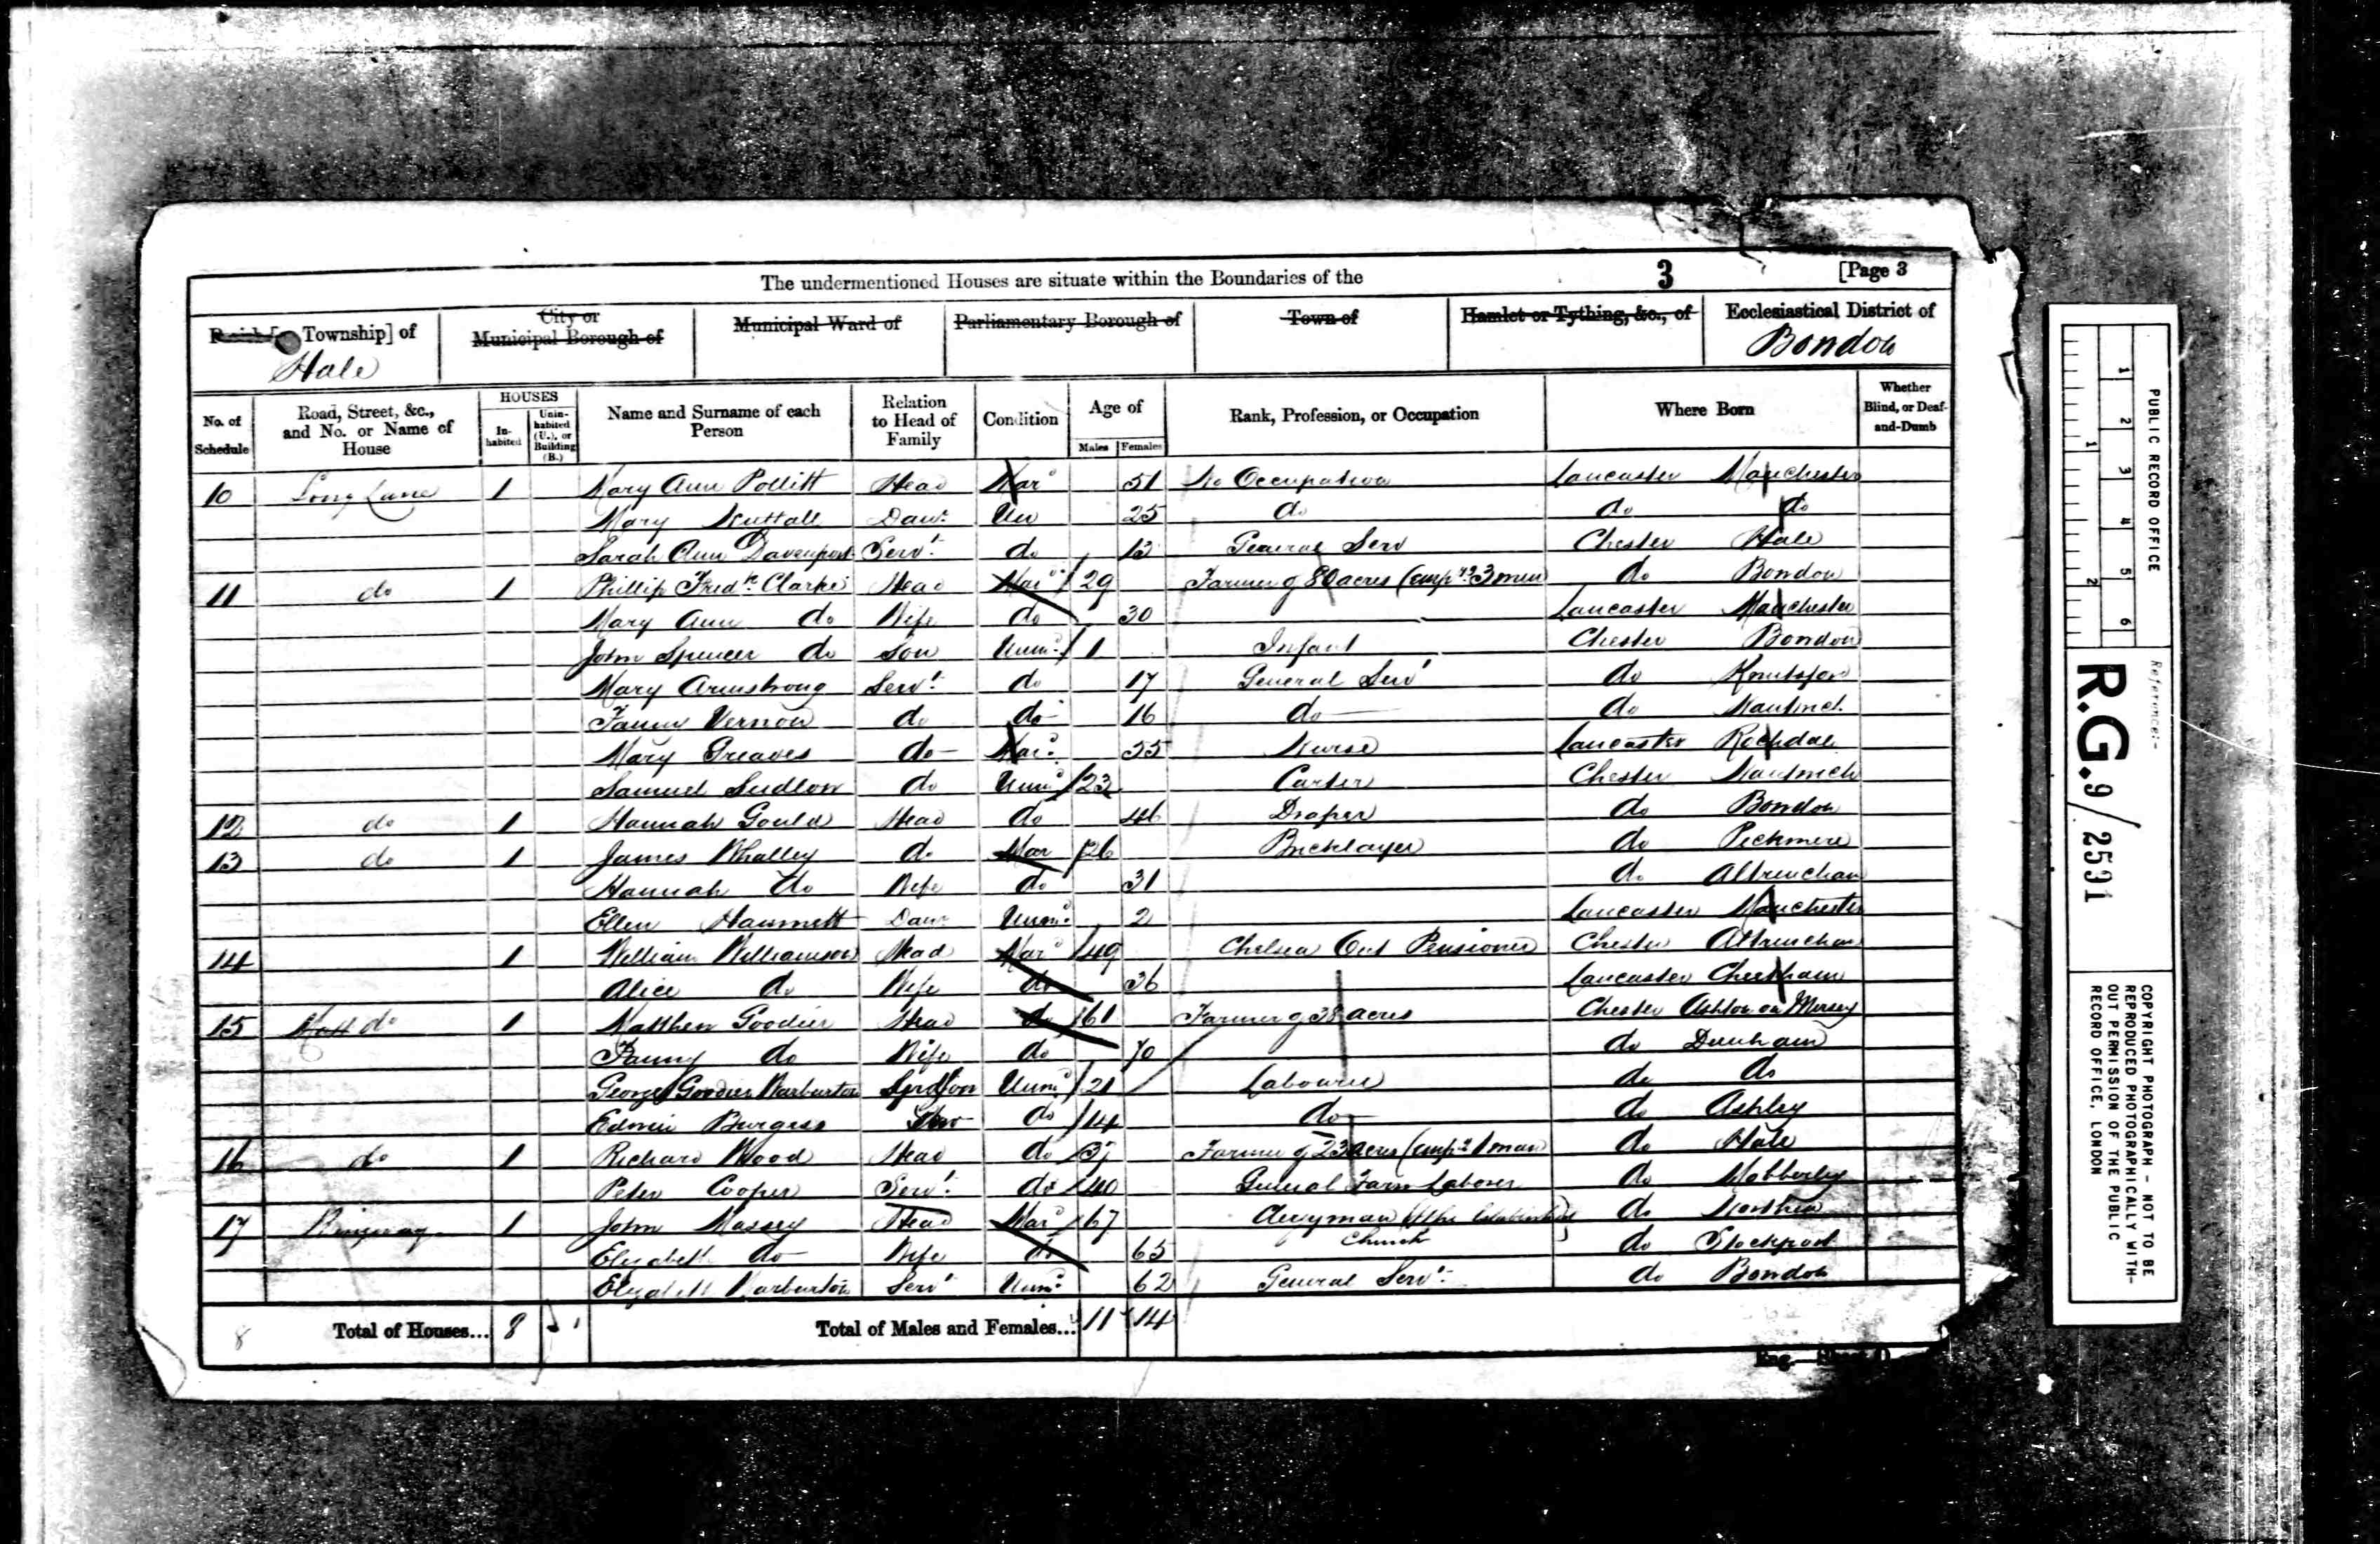 The undermentioned Houses are situate within the Boundaries of the 3 [Page 3
Township] of Hale
City or Municipal Borough of
Municipal Ward of
Parliamentary Borough of
Town of
Hamlet or Tything, &c., of
Ecclesiastical District of Bowdon
No. of Schedule
Road, Street, &c., and No. or Name of House
HOUSES
In-habited
Unin-habited (U.), or Building (B.)
Name and Surname of each Person
Relation to Head of Family
Condition
Age of
Males Females
Rank, Profession, or Occupation
Where Born
Whether Blind, or Deaf-and-Dumb
10 Long Lane 1 Mary Ann Pollitt Head Mar 51 No Occupation Lancaster Manchester
Mary Nuttall Daur. Un 25 do do do
Sarah Ann Davenport Servt. do 13 General Serv Chester Hale
11 do 1 Phillip Fredk. Clarke Head Mar 29 Farmer of 80 acres (empg 3 men do Bowdon
Mary Ann do Wife do 30 Lancaster Manchester
John Spencer do Son Unm. 1 Infant Chester Bowdon
Mary Armstrong Servt. do 17 General Servt do Knutsford
Fanny Vernon do do 16 do do Nantwich
Mary Greaves do Mar. 55 Nurse Lancaster Rochdale
Samuel Sudlow do Unm 23 Carter Chester Nantwich
12 do 1 Hannah Gould Head do 46 Draper do Bowdon
13 do 1 James Whalley do Mar 26 Bricklayer do Pickmere
Hannah do Wife do 31 do Altrincham
Ellen Hammett Daur Unm. 2 Lancaster Manchester
14 1 William Williamson Head Mar 49 Chelsea Out Pensioner Chester Altrincham
Alice do Wife do 36 Lancaster Cheetham
15 do 1 Matthew Goodier Head do 61 Farmer of 38 acres Chester Ashton on Mersey
Fanny do Wife do 70 do Dunham
George Goodier Warburton Unm 21 Labourer do do
Edwin Burgess Serv do 14 do do Ashley
16 do 1 Richard Wood Head do 37 Farmer of 23 acres (emp 1 man do Hale
Peter Cooper Servt. do 40 General Farm Laborer do Mobberley
17 Ringway 1 John Massey Head Mar 67 Clergyman of the Established do
Church
Elizabeth do Wife do 65 do Stockport
Elizabeth Warburton Servt Unm. 62 General Servt. do Bowdon
8 Total of Houses... 8 Total of Males and Females... 11 14
PUBLIC RECORD OFFICE
1 2 3 4 5 6
1 2
Reference:-
R.G. 9/2591
COPYRIGHT PHOTOGRAPH - NOT TO BE
REPRODUCED PHOTOGRAPHICALLY WITH-
OUT PERMISSION OF THE PUBLIC
RECORD OFFICE, LONDON